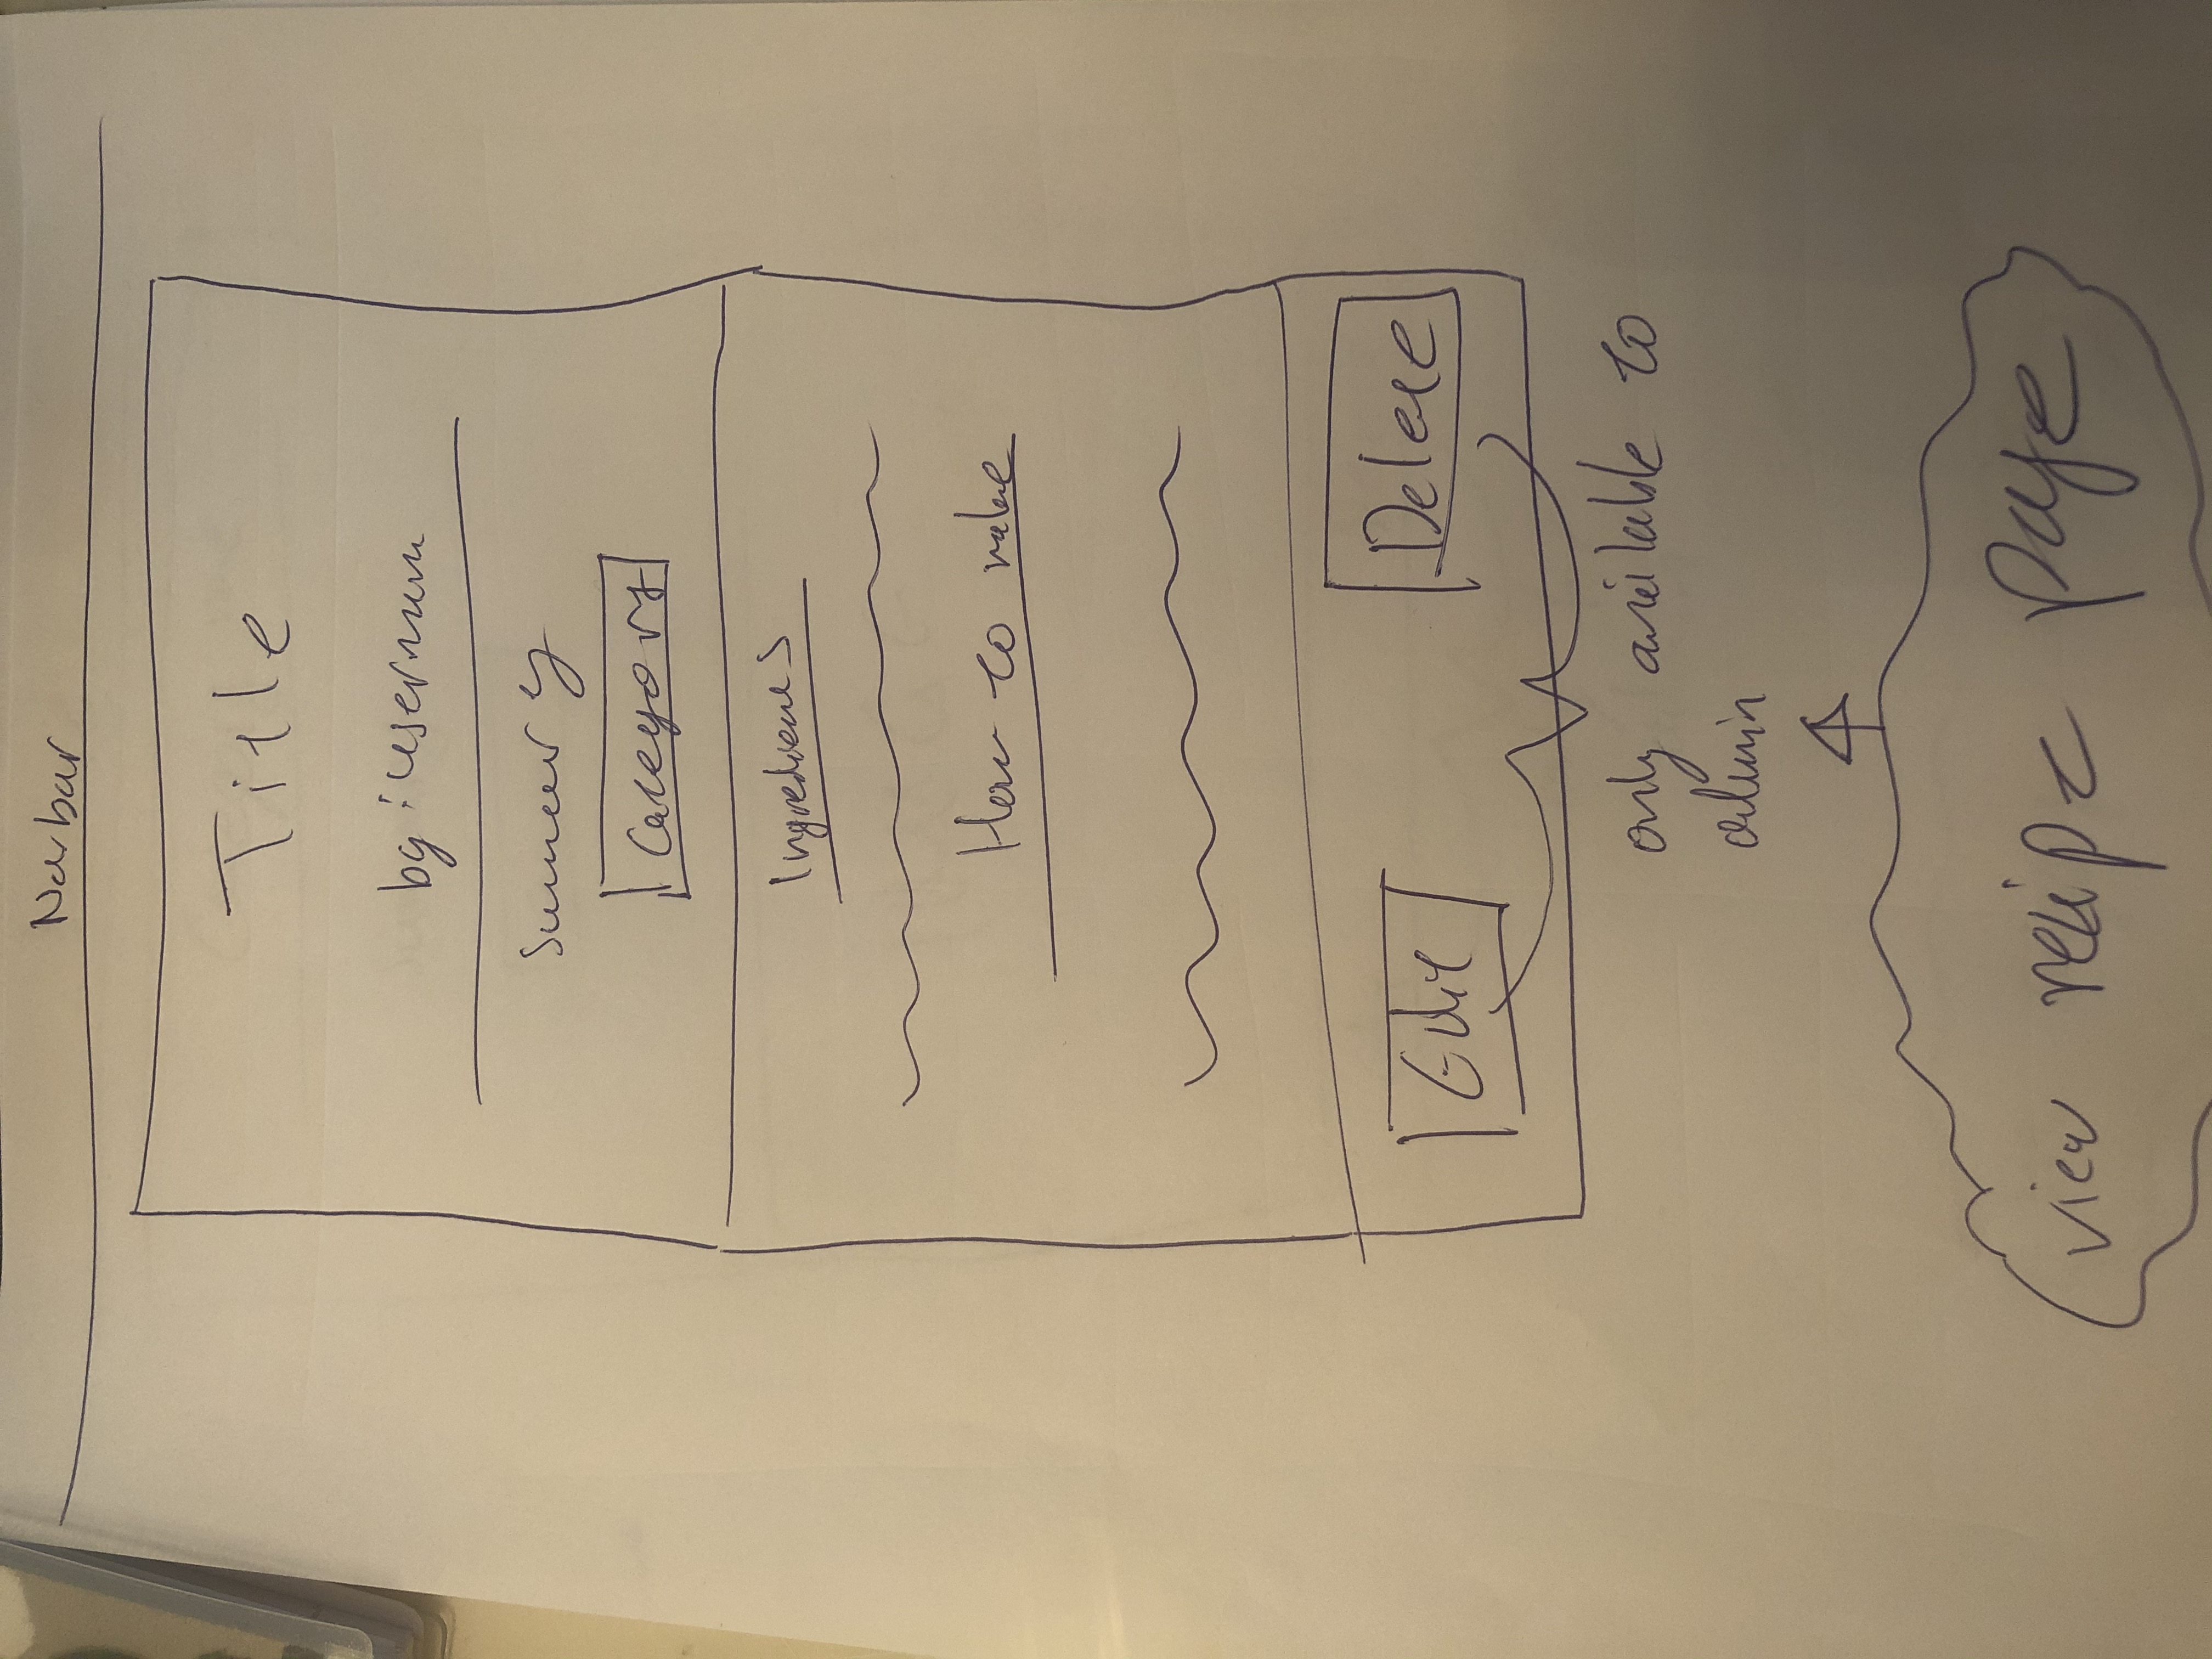 Navbar
Title
by: username
Summary
Category
Ingredients
How to make
Edit
Delete
only available to
admin
view recipe page